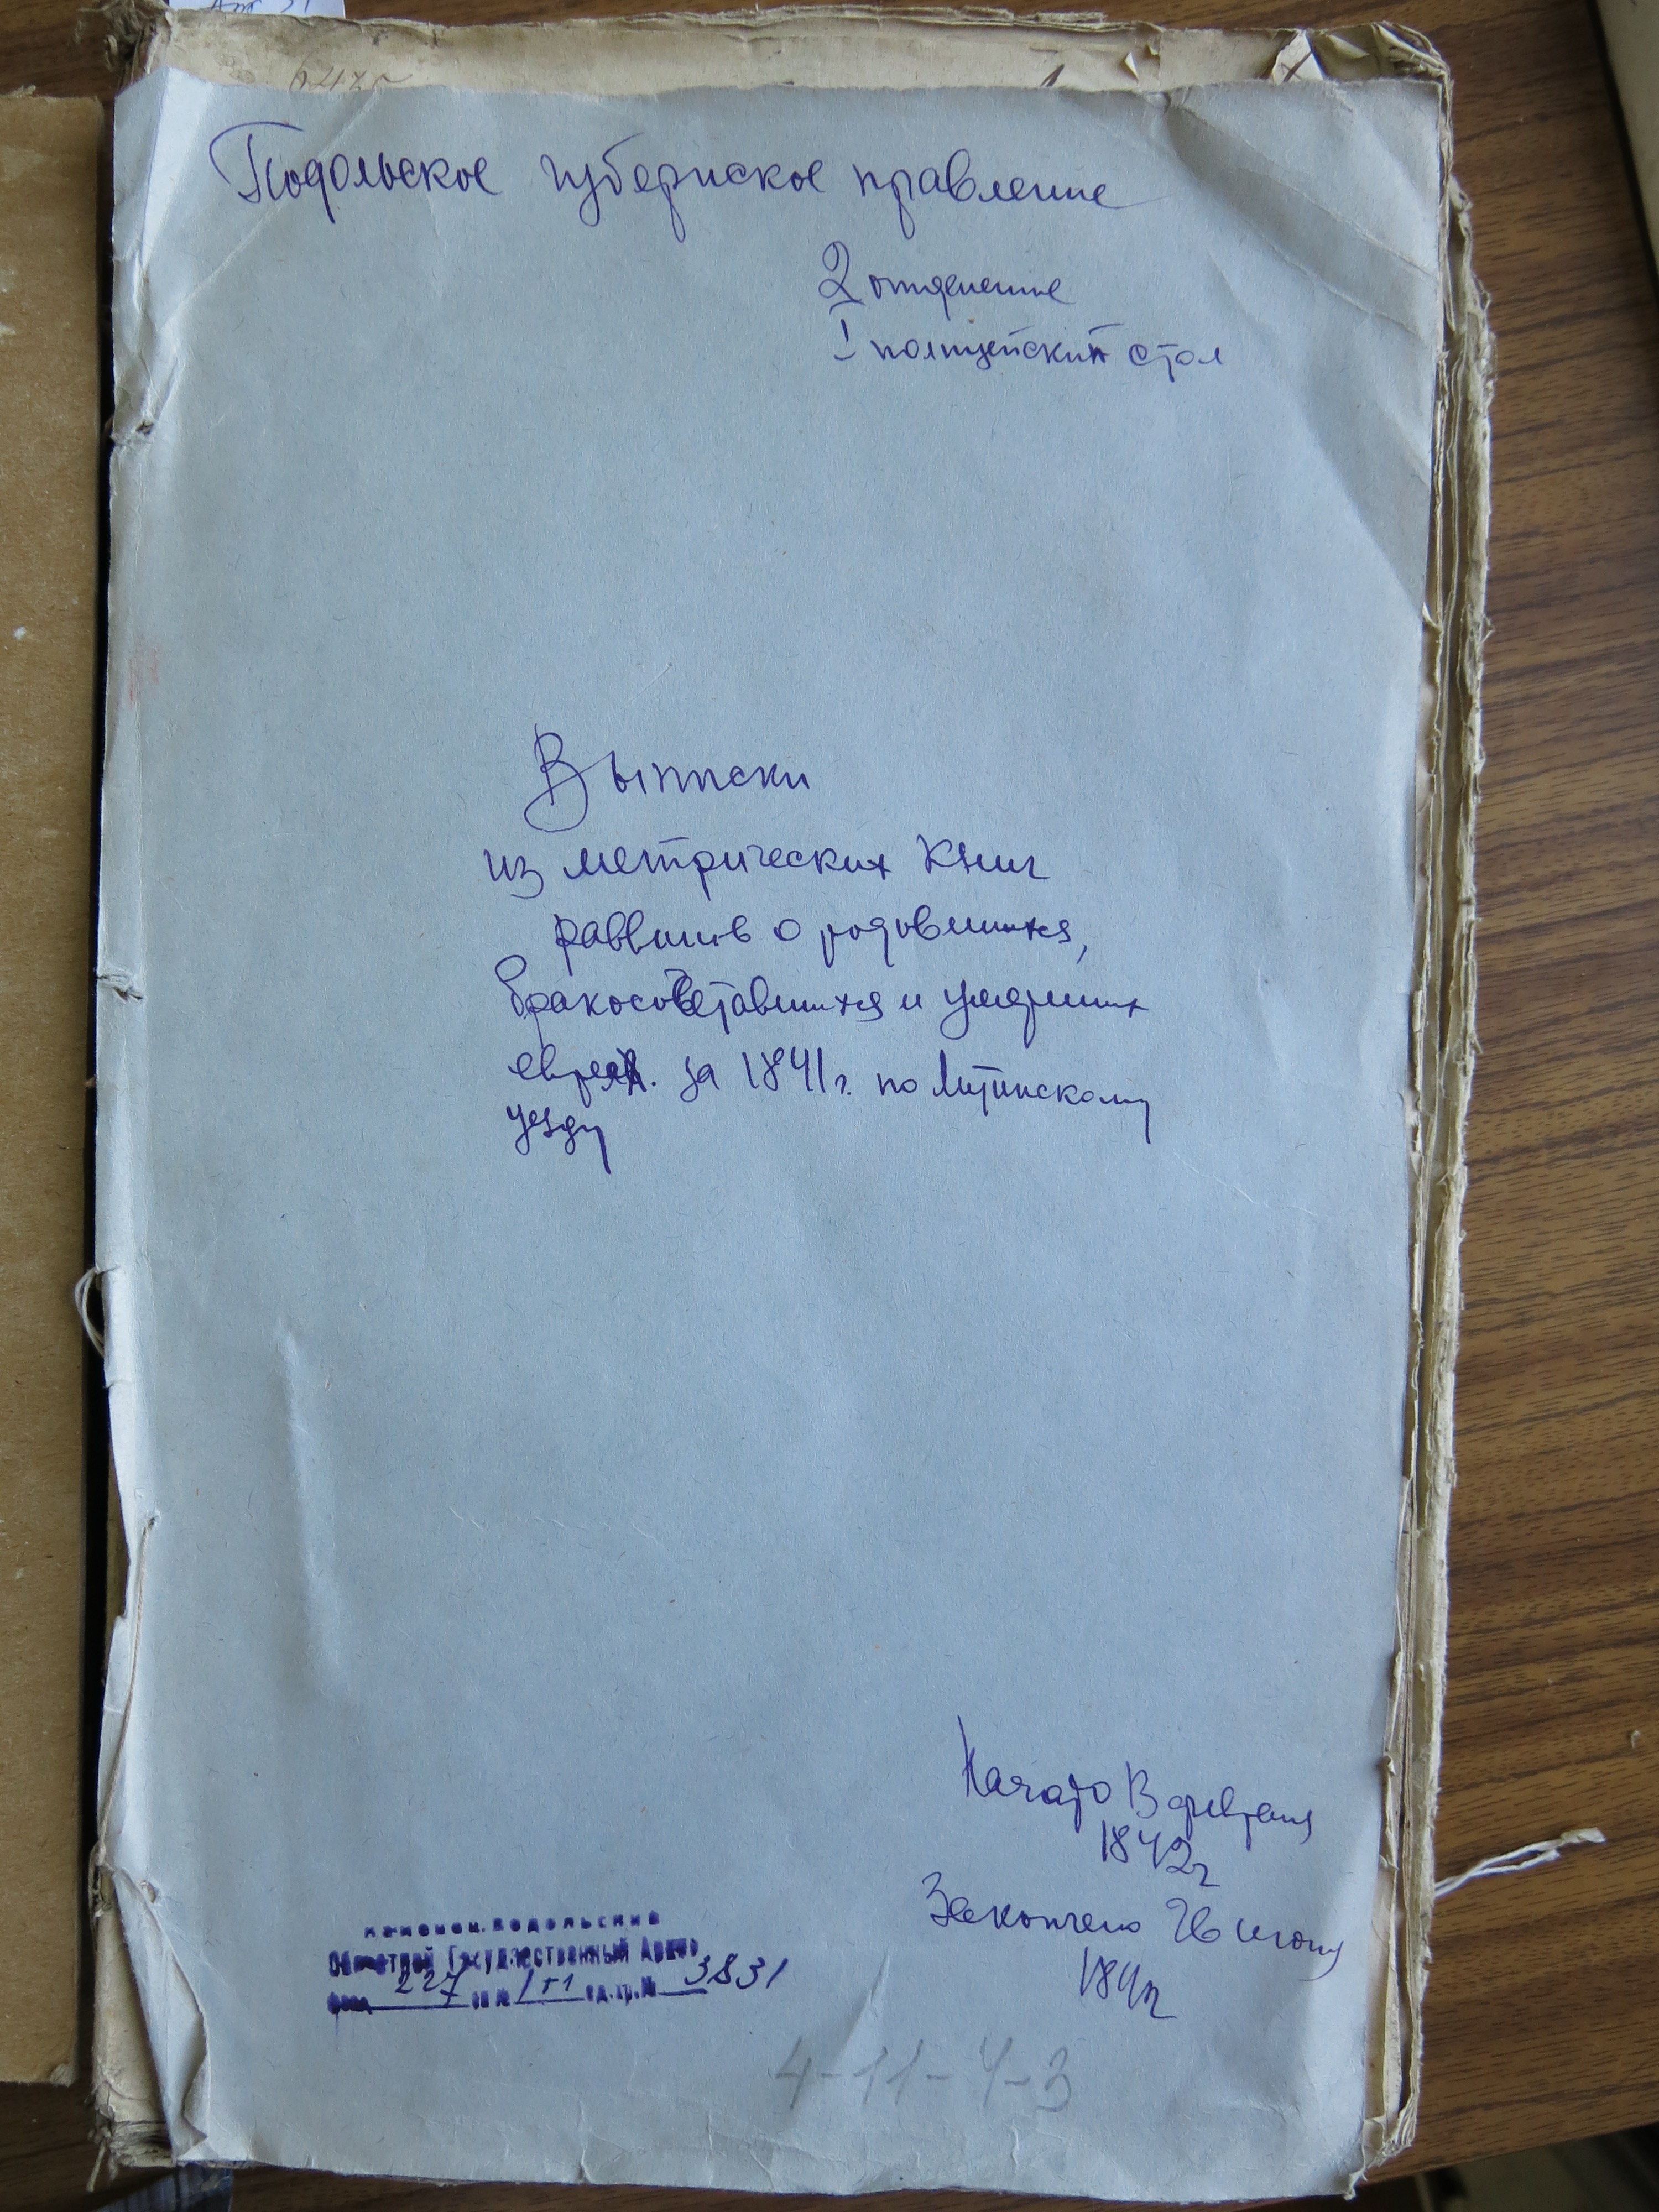 Подольское губернское правление
2 отделение
I полицейский стол
Выписки
из метрических книг
раввинов о родившихся,
бракосочетавшихся и умерших
евреях за 1841 г. по Литинскому
уезду
Начато В февраля
1842 г
Закончено июня
184
Каменец-Подольский
Областной Государственный Архив
фонд 227 оп № 1т1 ед.хр.№ 3831
4-11-4-3